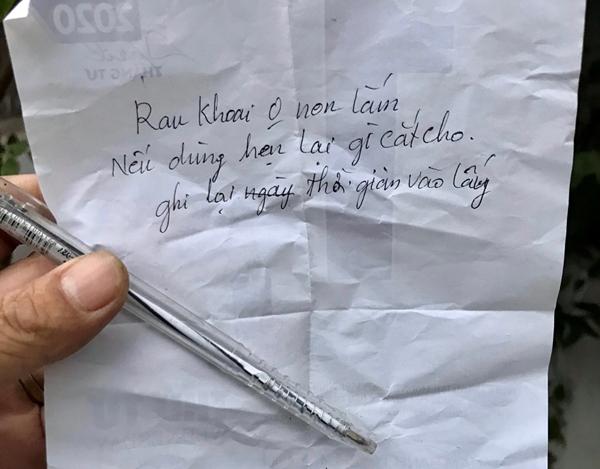 2020
THÁNG TƯ
Rau khoai ọ non lắm
Nếu dùng hẹn lại gì cắt cho.
ghi lại ngày thời gian vào lấy